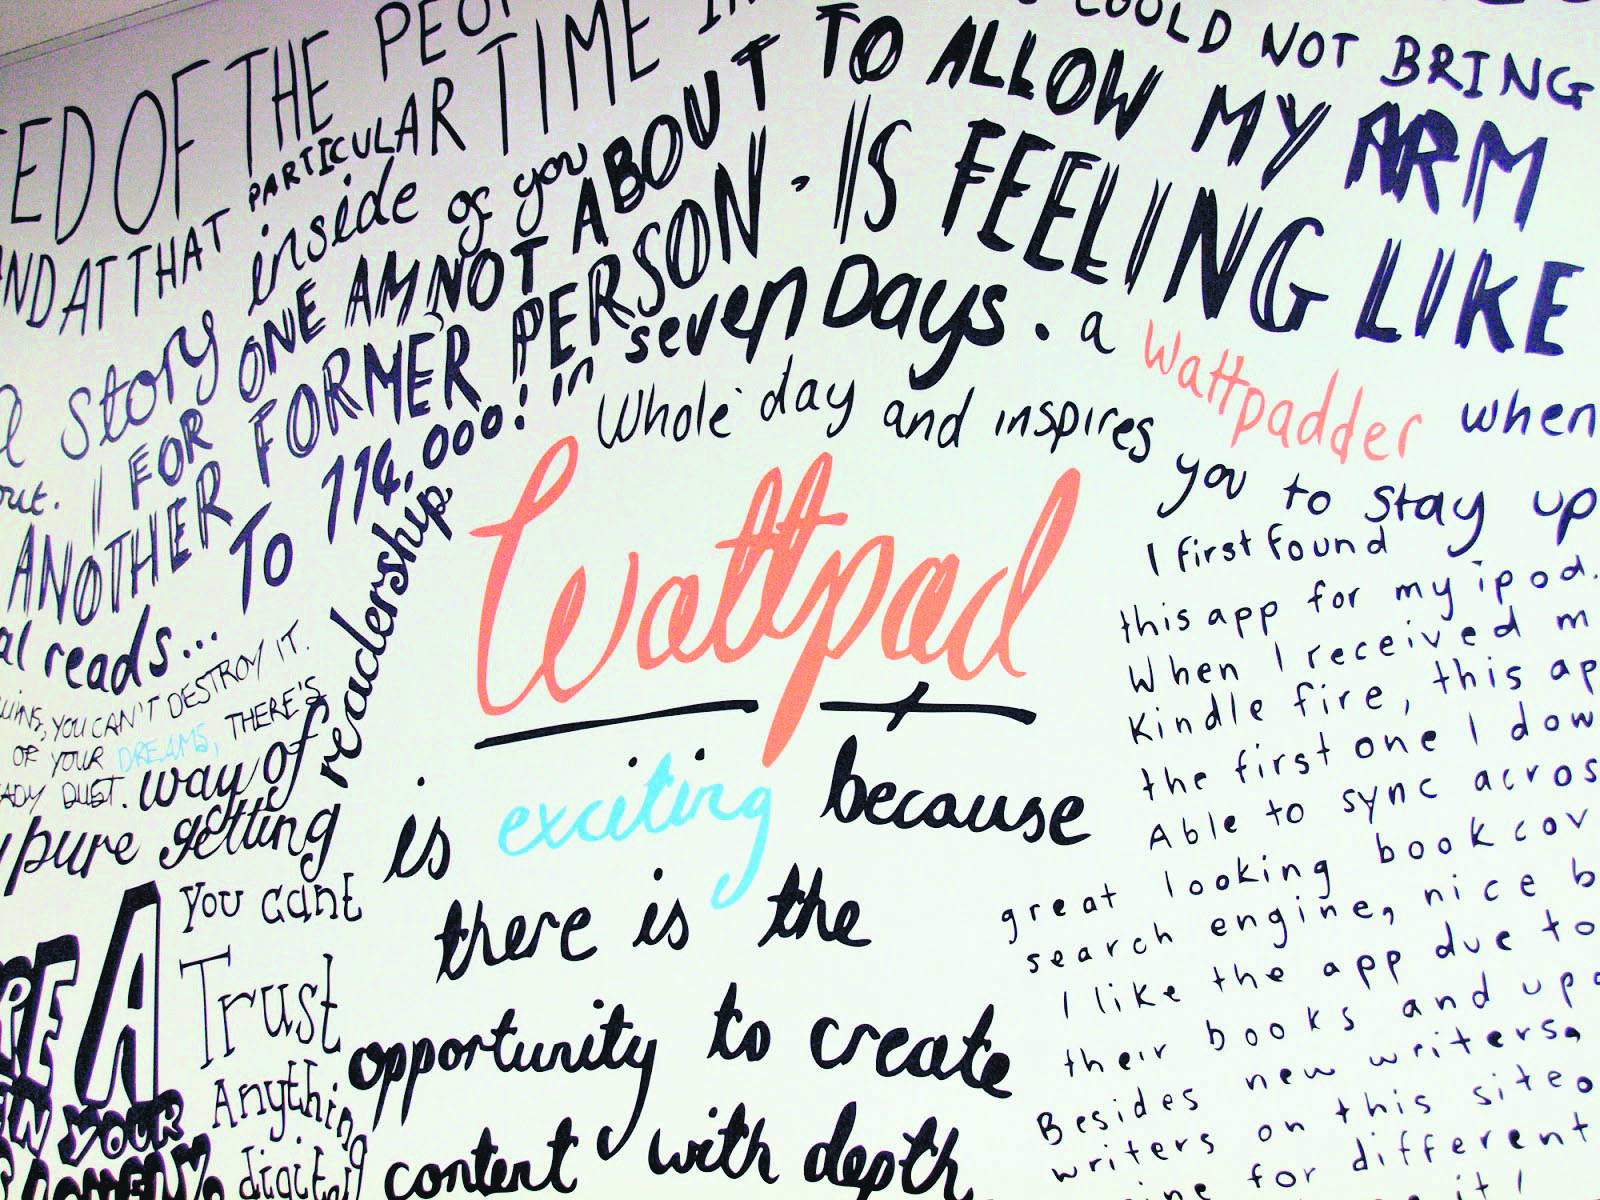 ED OF THE
PARTICULAR TIME
COULD NOT BRING
AND AT THAT
inside of you
a story
ONE AM NOT ABOUT TO ALLOW MY ARM
out. I FOR
ANOTHER FORMER PERSON - IS FEELING LIKE
TO 114,000! in seven Days. a wattpadder when
reads...
way of
getting
readership.
Whole day and inspires
you to stay up
WINS, YOU CAN'T DESTROY IT.
OF YOUR DREAMS, THERE'S
DUST.
pure
Wattpad
is exciting because
there is the
opportunity to create
content with depth
You cant
Trust
Anything
digital
A
YOUR
I first found
this app for my ipod.
When I received m
Kindle fire, this ap
the first one I dow
Able to sync acros
great looking book cov
search engine, nice b
I like the app due to
their books and upd
Besides new writers,
writers on this site
for different